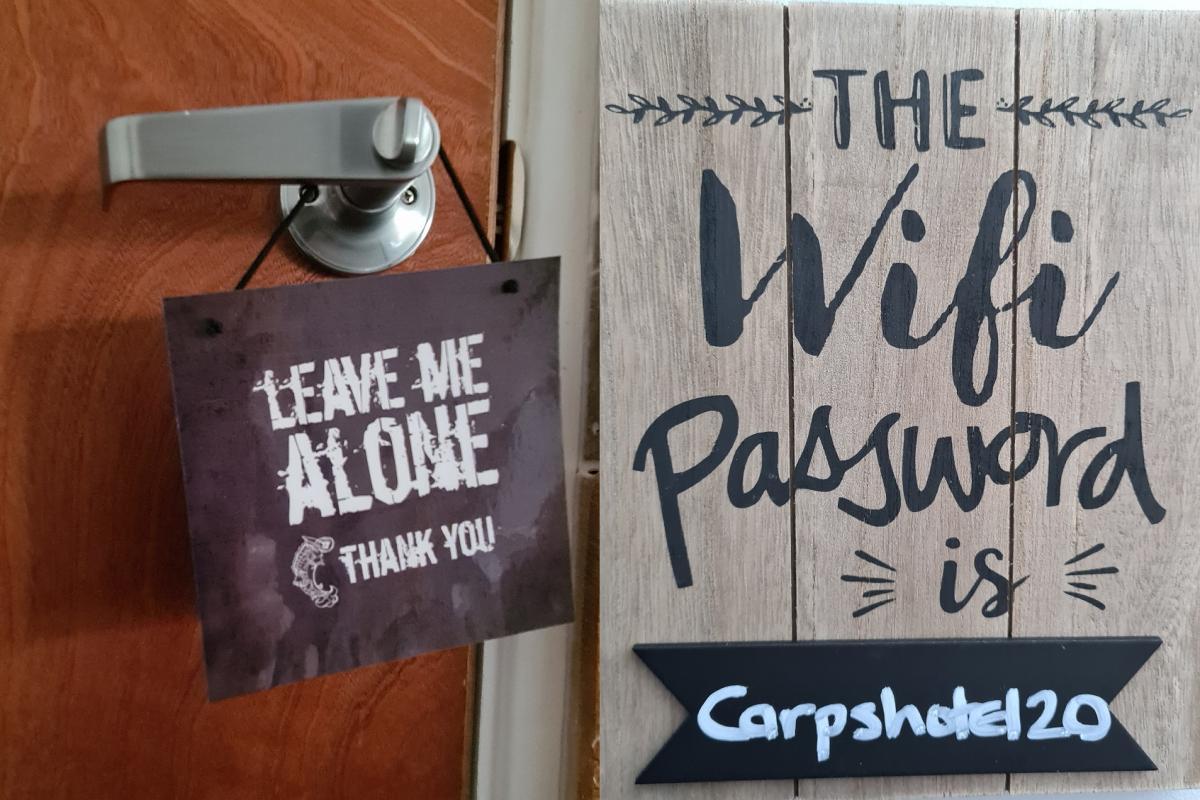 LEAVE ME
ALONE
THANK YOU
THE
Wifi
Password
is
Carpshotel20